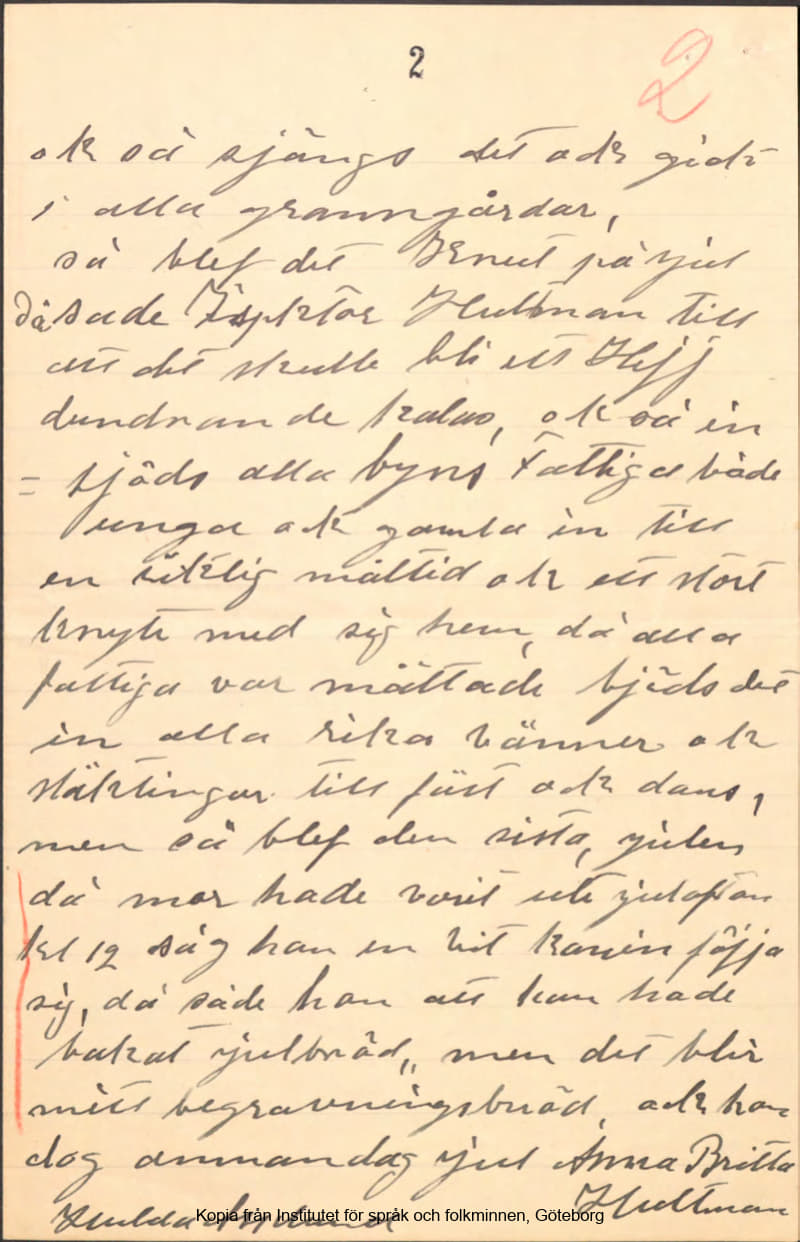 2
2
ok så sjöngs det ock
i alla granngårdar,
så blef det Knut på yul
Då sade Hultman till
att det skulle bli ett Hejj
dundrande kalas, ok så in
= bjöds alla byns Fattiga både
unga ock gamla in till
en riktig måltid ok ett stort
knyte med sig hem, då alla
fattiga var mättade bjöds det
in alla rika vänner ok
släktingar till fäst ock dans,
men så blef den sista, yulen
då mor hade varit ute yulafton
kl 12 såg hon en vit kanin föjja
sig, då sade hon att hon hade
bakat yulbröd,, men det blir
mitt begravningsbröd, ock hon
dog annandag yul Anna Britta
Hultman
Hulda
Kopia från Institutet för språk och folkminnen, Göteborg